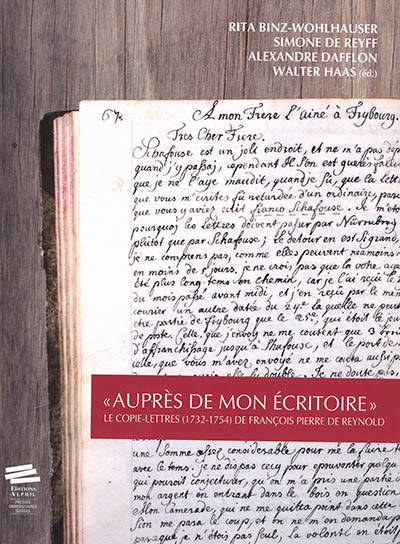 RITA BINZ-WOHLHAUSER
SIMONE DE REYFF
ALEXANDRE DAFFLON
WALTER HAAS (éd.)
67.
A mon Frere l'ainé à Frybourg.
Tres Cher Frere.
Schafouse est un joli endroit, et ne m'a pas dep
quand j'y passaj, cependant Il s'en est
que je ne l'aye maudit, quand je sû, que la lett
que vous m'ecrites fû retardée d'un ordinaire, par
que vous y aviés mit franco Schafouse. Je m'éto
pourquoj les Lettres doivent passer par Nürnbroj
plûtot que par Schafouse; le detour en est si grand,
je ne comprens pas, comme elles peuvent néamoins
en moins de jours. je ne crois pas que la votre aye
été plus long-tems en chemin, car je l'ai reçu le
du mois passé avant midi, et j'en reçû par le mêm
courier un autre datée du 24e laquelle ne peut
etre partie de Frybourg que le 25e, qui étoit le jou
de poste. Celle que j'envoy ne me coutent que 3
d'affranchisage jusqu'à Shafouse, et le port de
velle, que vous m'avez envoyé ne me couta aussi
elle double. Je ne doute pas,
« AUPRÈS DE MON ÉCRITOIRE »
LE COPIE-LETTRES (1732-1754) DE FRANÇOIS PIERRE DE REYNOLD
une Somme assez considerable pour me la faire
avec le tems. je ne dis pas cecy pour epouventer quelqu
qui pouroit conjecturer, qu'on m'a pris une partie
mon argent en entrant dans le bois en question
Mon Camerade, qui ne me quitta point dans cette
Son me para le coup, et on ne m'en demanda p
parceque je n'étois pas seul, la volonté en étoit
EDITIONS
ALPHIL
PRESSES
UNIVERSITAIRES
SUISSES